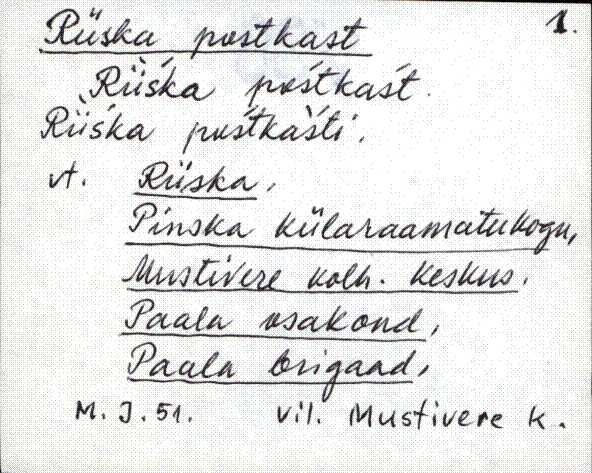 1.
Rüska postkast
Rüśka pośtkaśt.
Rüśka pośtkaśti,
vt. Rüska,
Pinska külaraamatukogu,
Mustivere kolh. keskus,
Paala osakond,
Paala brigaad,
M. J. 51. Vil. Mustivere k.